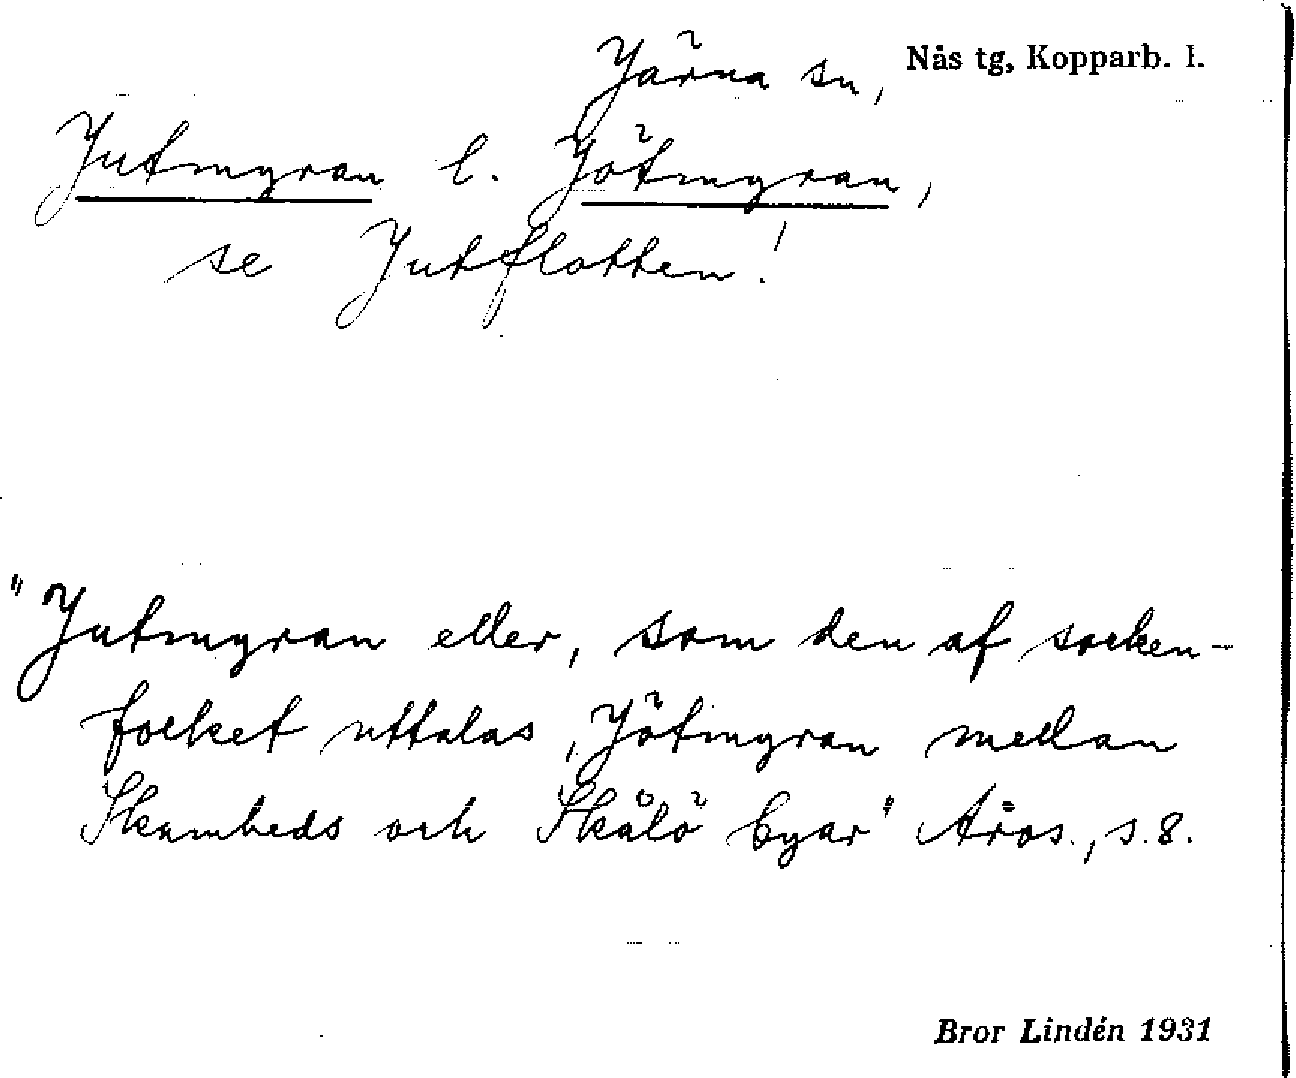 Järna sn, Nås tg, Kopparb. l.
Jutmyran l. Jötmyran,
se Jutflotten!
"Jutmyran eller, som den af socken-
folket uttalas, Jötmyran mellan
Skamheds och Skålö byar" Åros., s. 8.
Bror Lindén 1931